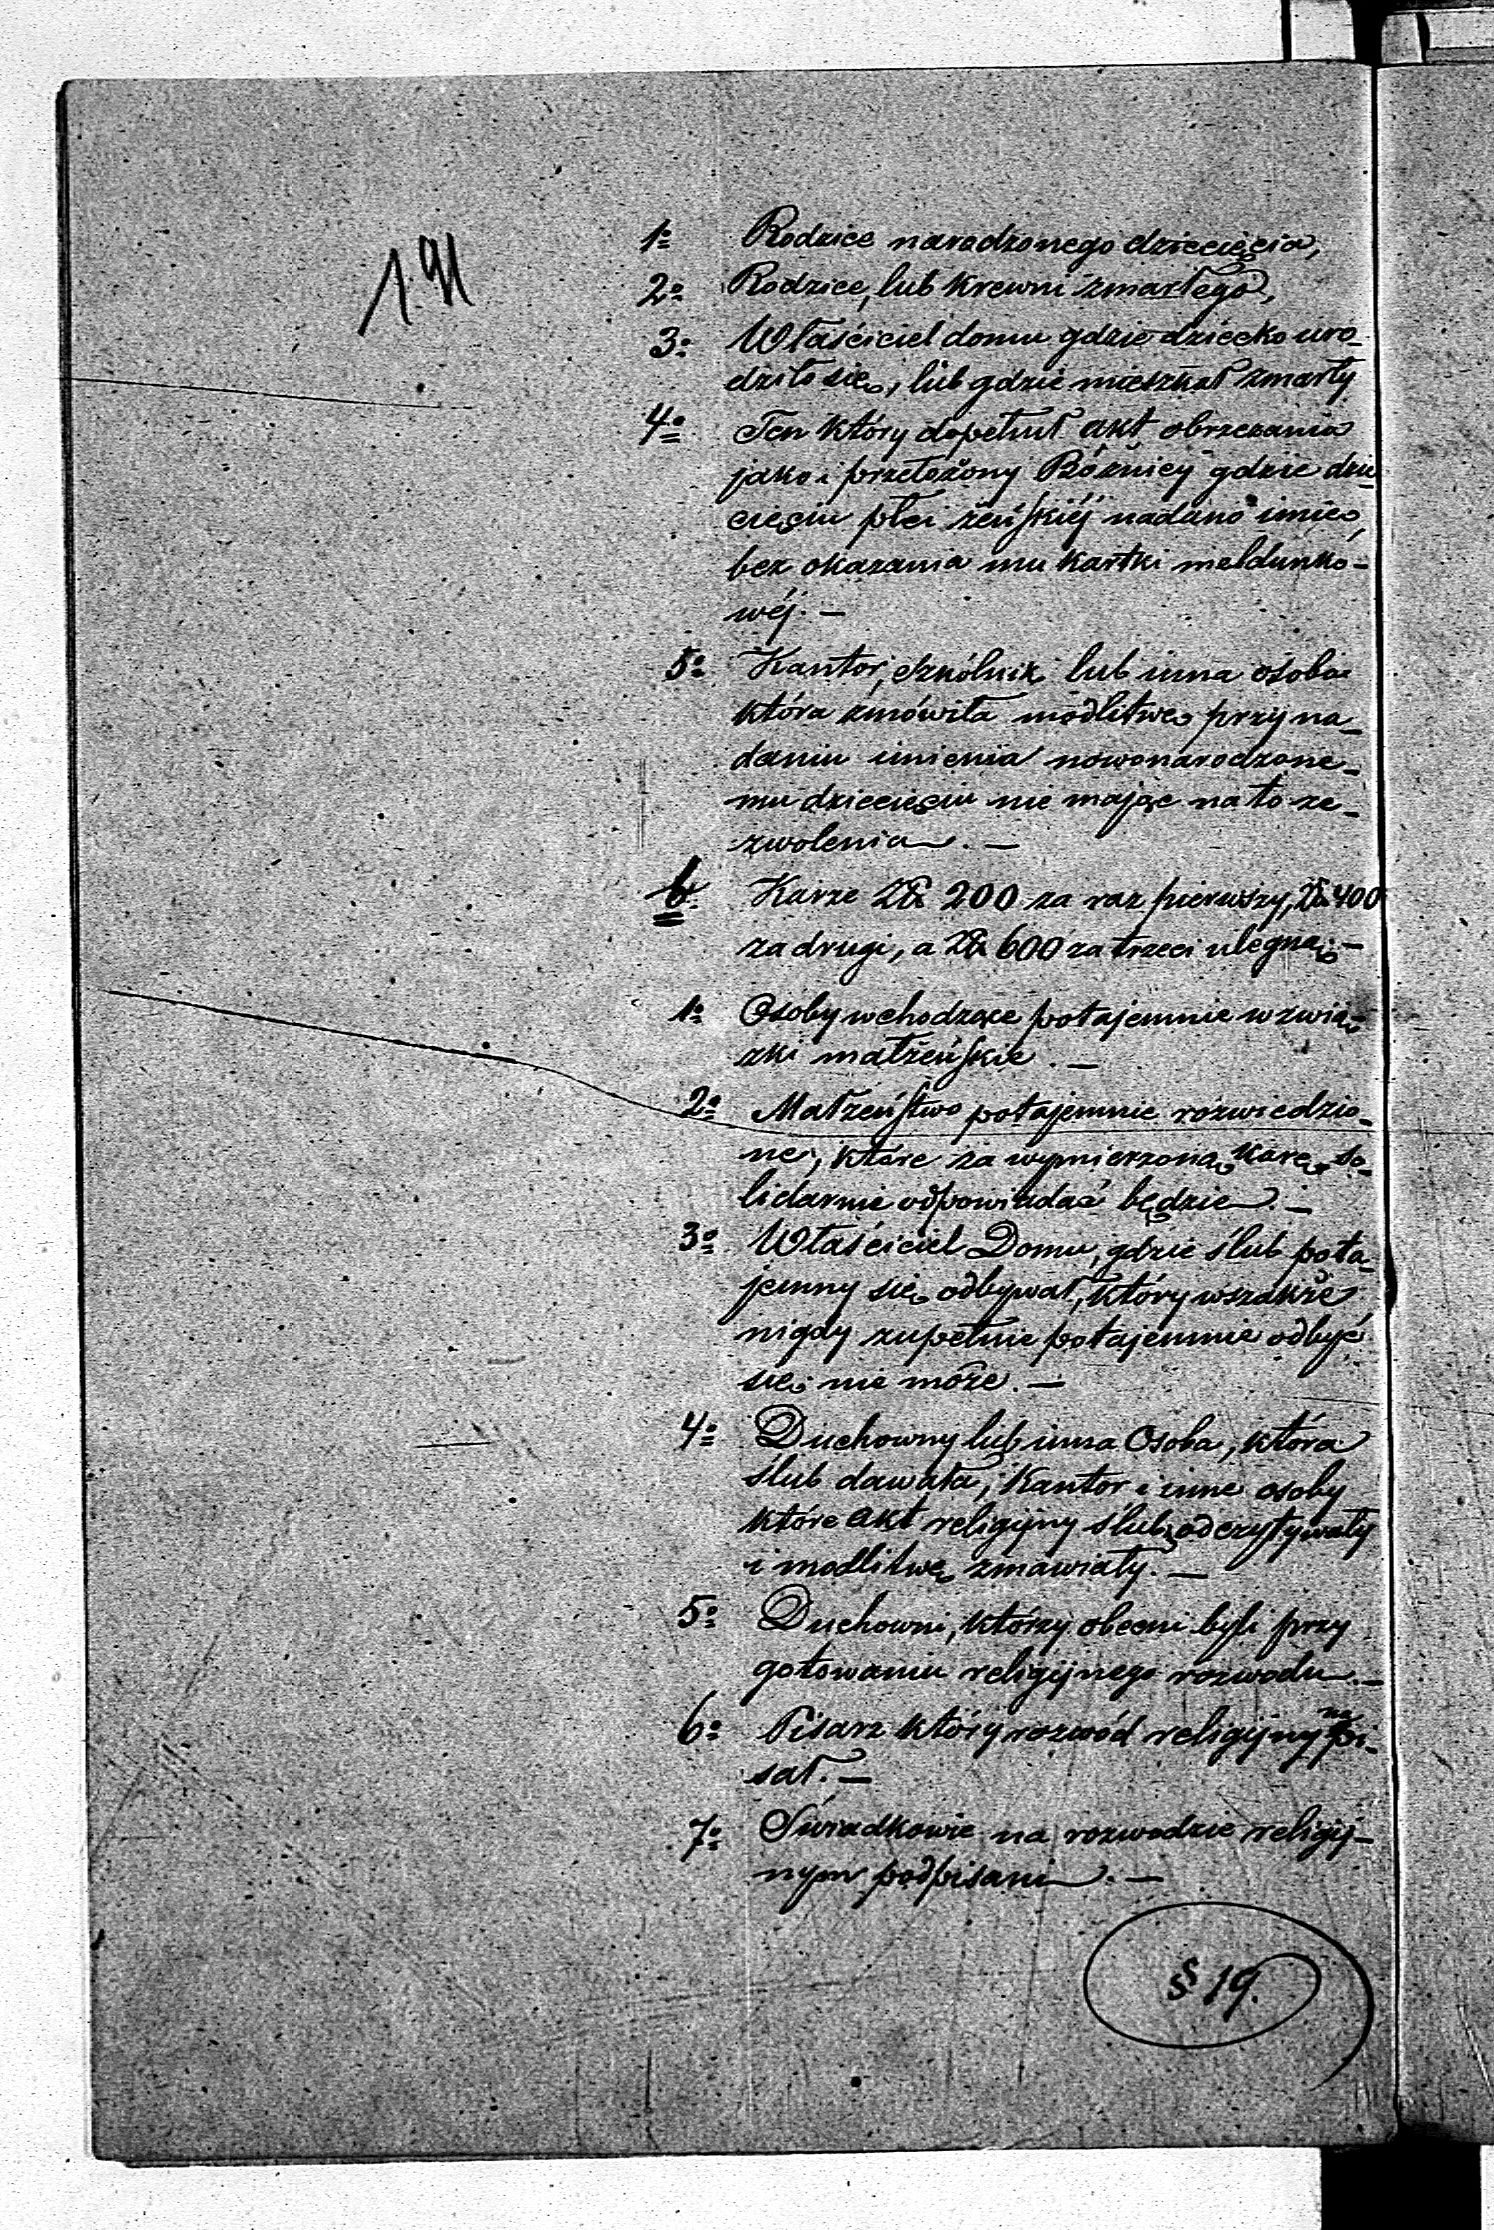 1. 91
1o Rodzice narodzonego dziecięcia,
2o Rodzice, lub krewni zmarłego,
3o Właściciel domu gdzie dziecko uro-
dziło się, lub gdzie mieszkał zmarły
4o Ten który dopełnił akt obrzezania
jako i przełożony Bóżnicy gdzie dzie-
cięciu płci żeńskiéj nadano imię,
bez okazania mu kartki meldunko-
wéj. —
5o Kantor, szkólnik lub inna osoba
która zmówiła modlitwę przy na-
daniu imienia nowonarodzone-
mu dziecięciu nie mając na to ze-
zwolenia. —
b. Karze Zł. 200 za raz pierwszy, Zł. 400
za drugi, a Zł. 600 za trzeci ulegną. —
1o Osoby wchodzące potajemnie w zwią-
zki małżeńskie. —
2o Małżeństwo potajemnie rozwiedzio-
ne, które za wymierzoną karę so-
lidarnie odpowiadać będzie. —
3o Właściciel Domu, gdzie ślub pota-
jemny się odbywał, który wszakże
nigdy zupełnie potajemnie odbyć
się nie może. —
4o Duchowny lub inna Osoba, która
ślub dawała, Kantor i inne osoby
które akt religijny ślubu odczytywały
i modlitwę zmawiały. —
5o Duchowni, którzy obecni byli przy
gotowaniu religijnego rozwodu. —
6o Pisarz który rozwód religijny napi-
sał. —
7o Świadkowie na rozwodzie religij-
nym podpisani. —
§ 19.